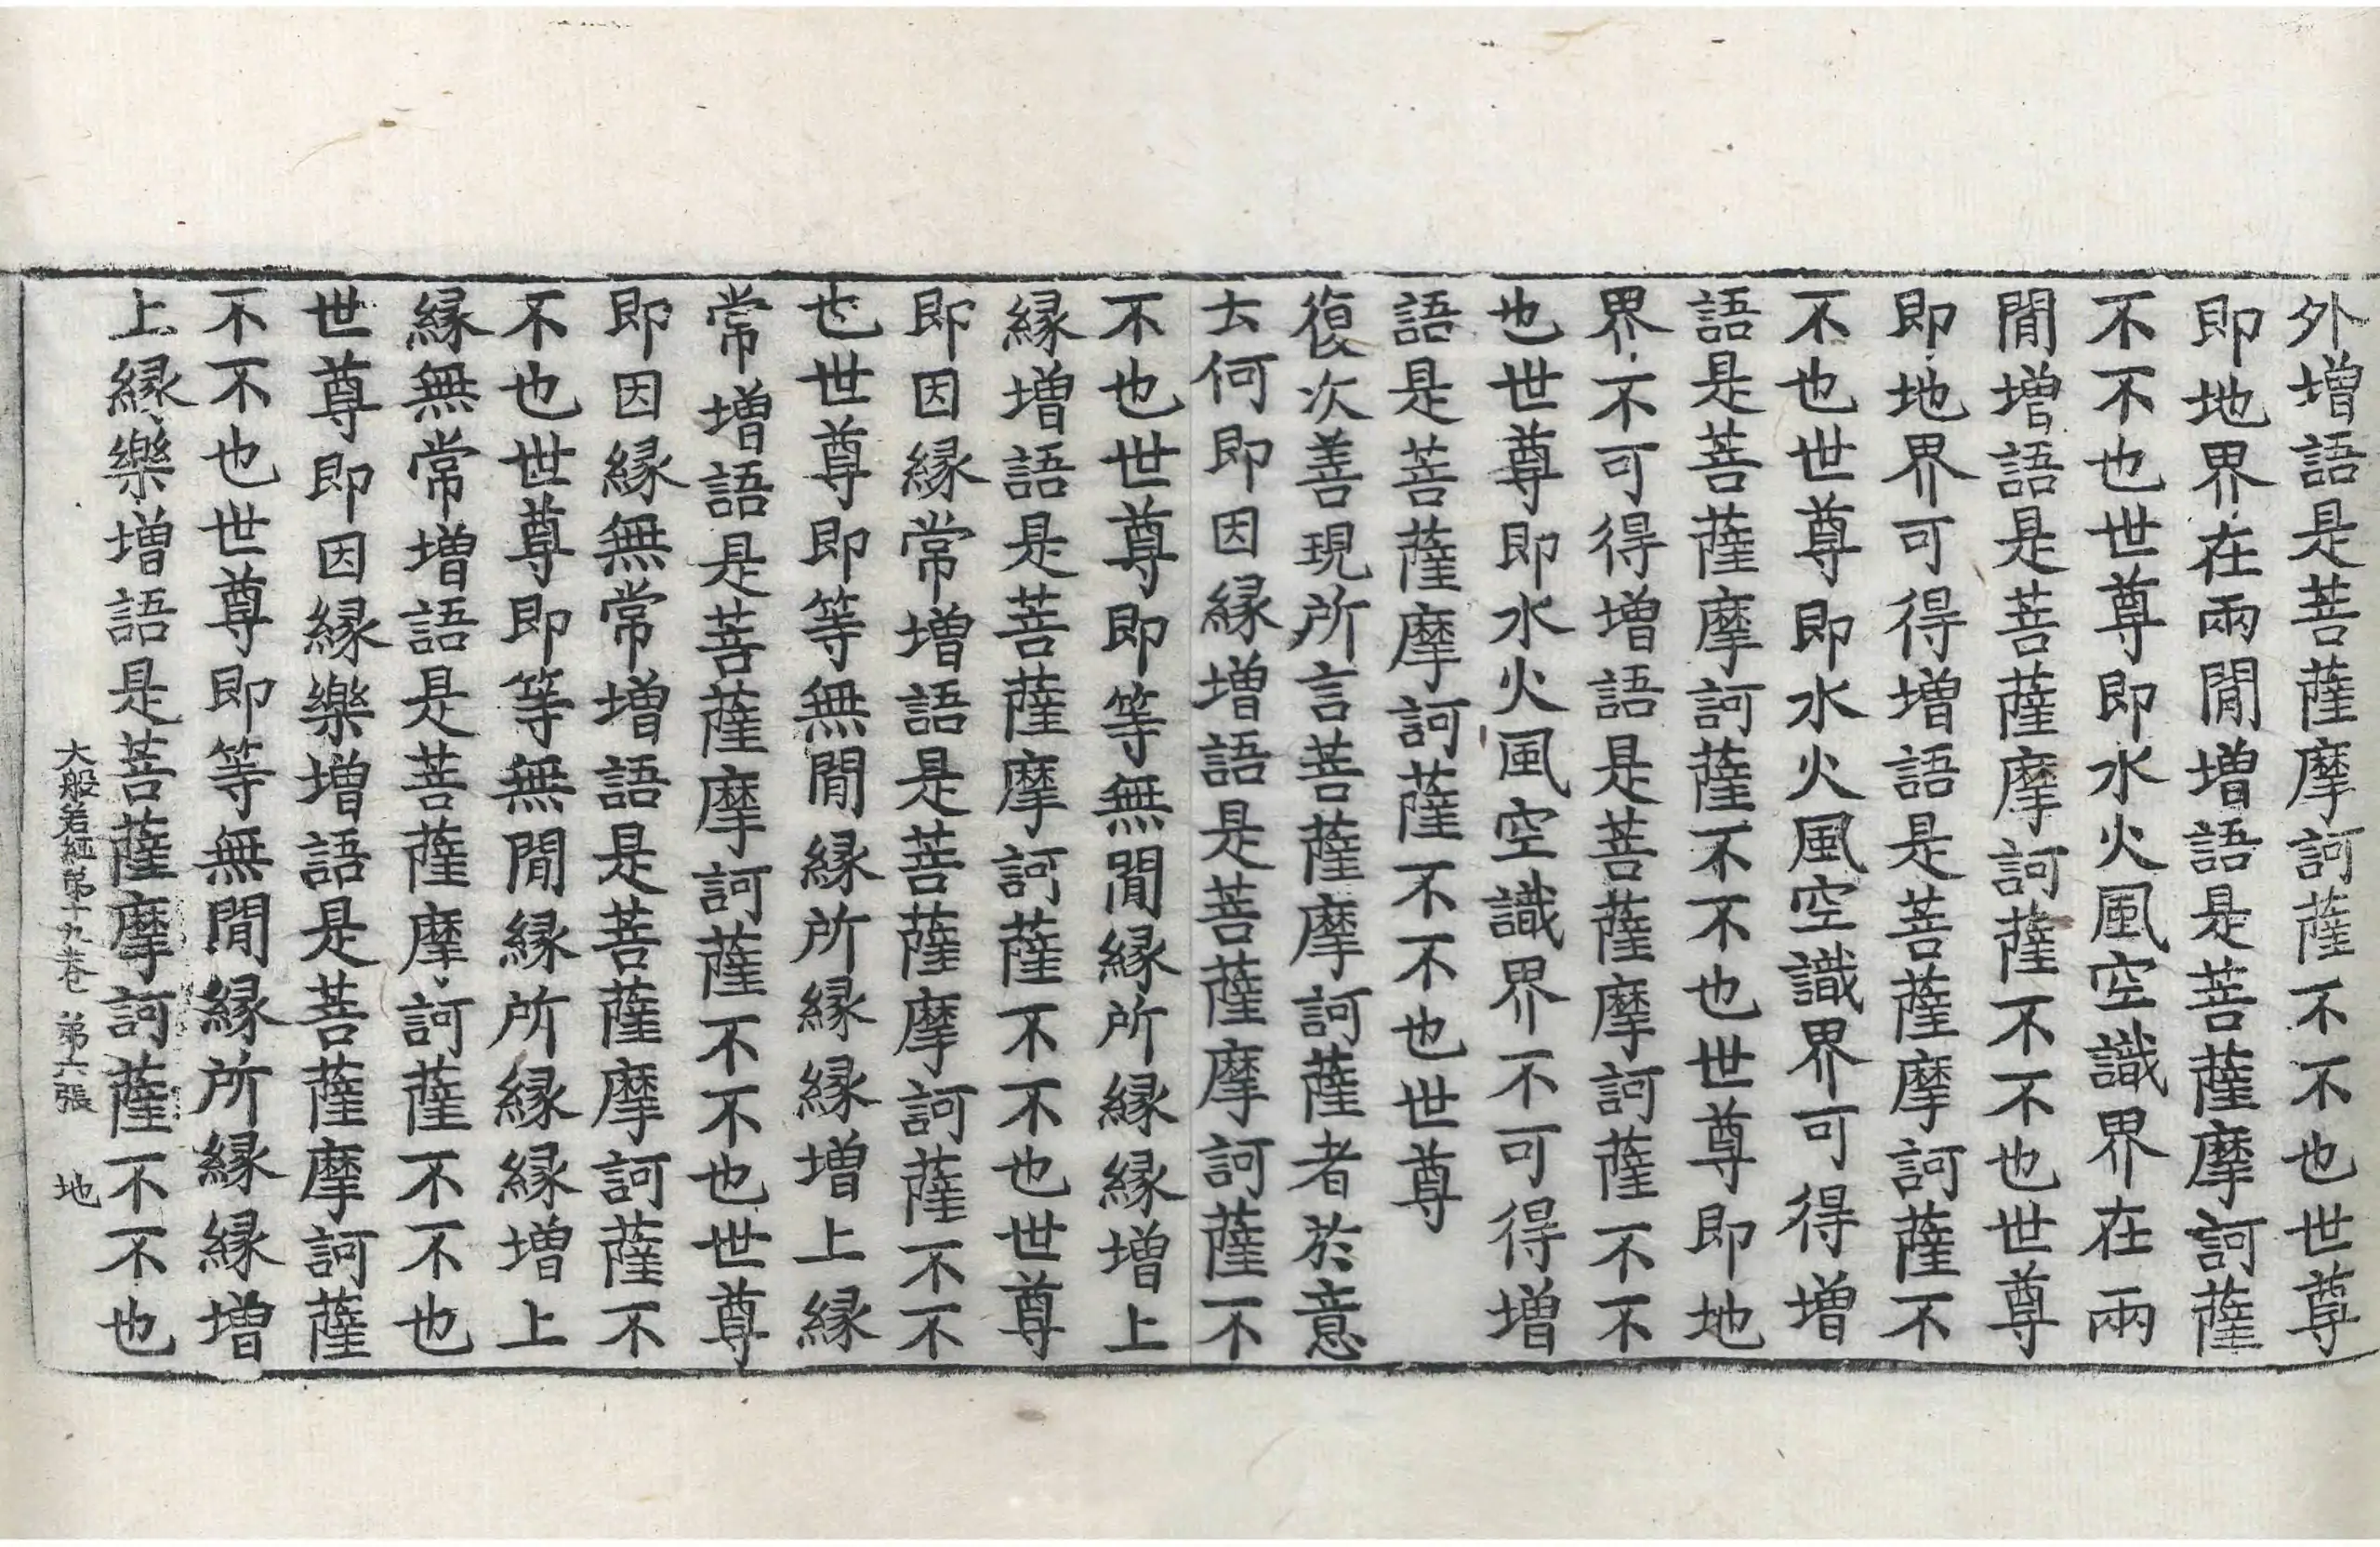 外增語是菩薩摩訶薩不不也世尊
即地界在兩閒增語是菩薩摩訶薩
不不也世尊即水火風空識界在兩
閒增語是菩薩摩訶薩不不也世尊
即地界可得增語是菩薩摩訶薩不
不也世尊即水火風空識界可得增
語是菩薩摩訶薩不不也世尊即地
界不可得增語是菩薩摩訶薩不不
也世尊即水火風空識界不可得增
語是菩薩摩訶薩不不也世尊
復次善現所言菩薩摩訶薩者於意
云何即因緣增語是菩薩摩訶薩不
不也世尊即等無閒緣所緣緣增上
緣增語是菩薩摩訶薩不不也世尊
即因緣常增語是菩薩摩訶薩不不
也世尊即等無閒緣所緣緣增上緣
常增語是菩薩摩訶薩不不也世尊
即因緣無常增語是菩薩摩訶薩不
不也世尊即等無閒緣所緣緣增上
緣無常增語是菩薩摩訶薩不不也
世尊即因緣樂增語是菩薩摩訶薩
不不也世尊即等無閒緣所緣緣增
上緣樂增語是菩薩摩訶薩不不也
大般若經第十九卷 第六張 地